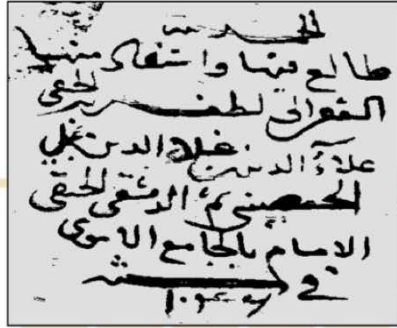 الحمد لله
طالع فيها واستفاد منها
الفقير إلى لطف الخفي
علاء الدين بن علي
الحصني ثم الدمشقي الحنفي
الإمام بالجامع الأموي
في